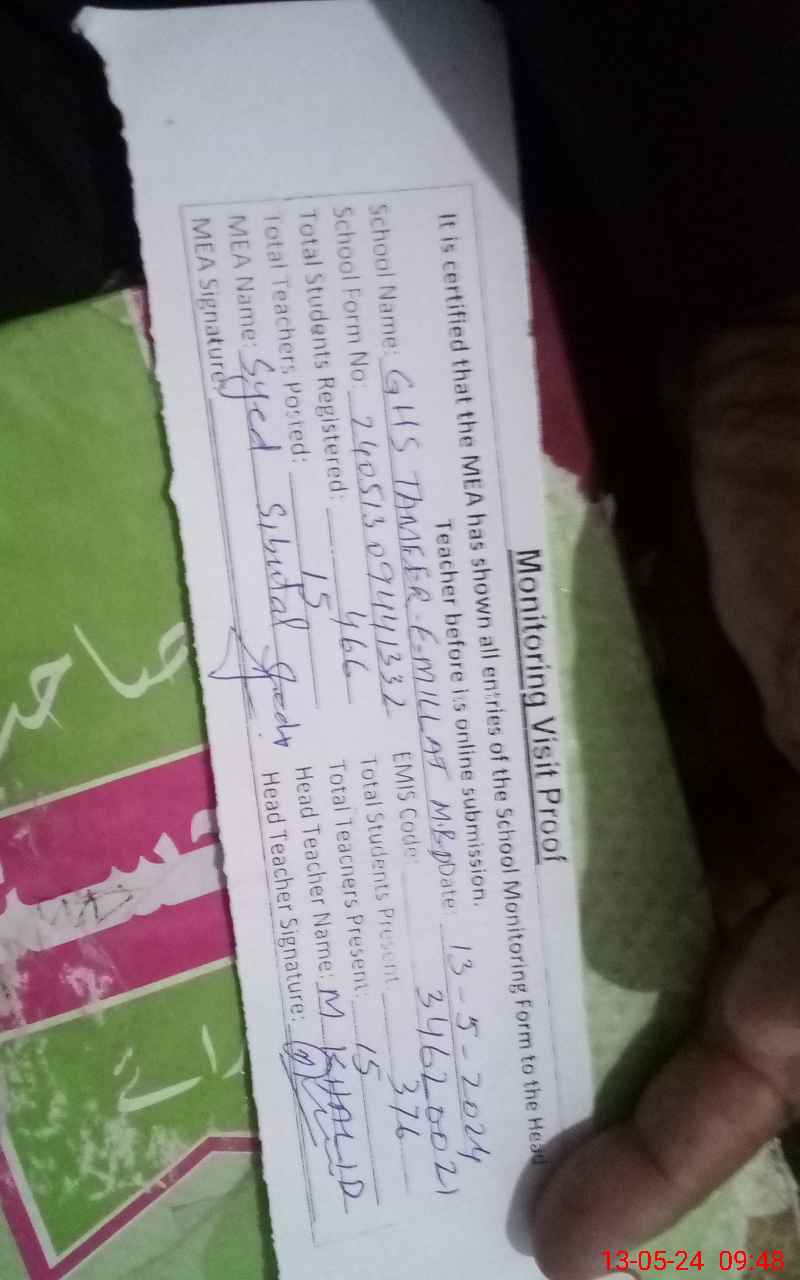 Monitoring Visit Proof
It is certified that the MEA has shown all entries of the School Monitoring Form to the Head
Teacher before its online submission.
School Name: GHS TAMEER-E-MILLAT M.B.D Date: 13-5-2024
School Form No: 24051309441332 EMIS Code: 34620021
Total Students Registered: 466 Total Students Present: 376
Total Teachers Posted: 15 Total Teachers Present: 15
MEA Name: Syed Head Teacher Name: M KHALID
MEA Signature: Head Teacher Signature:
صاحبـ
حسـ
رائے
13-05-24 09:48